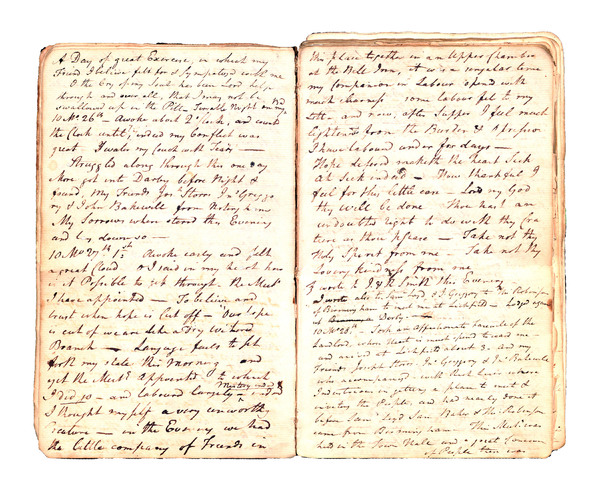 A Day of great Exercise, in which my
Friend I believe felt for & Sympathyed with me
O the Cry of my Soul has been Lord help
through and over all, that I may not be
swallowed up in the Pitts Tryable Night on my Bed
10 Mo. 26th - Awoke about 2 o'Clock, and counted
the Clock until indeed my Conflict was
great I water my Couch with Tears
Struggled along through this one day
More got into Darby before Night &
found, my Friends Jos. Storrs Jn. Grego
ry & John Bakewell from Nottingham
My Sorrows when stored this Evening
and lay down so
10 Mo. 27th 1st Awoke early and felt
a great Cloud & I said in my heart how
is it Possible to get through the Meet
I have appointed - To believe and
trust when hope is Cut off - Our hope
is cut of we are like a Dry Withered
Branch - Language fails to set
forth my state this Morning and
yet the Meet. appointed to which
I Did so - and laboured Largely
I thought myself a very unworthy
Creature - in the Evening we had
the little company of Friends in
this place together in an Upper Chamber
at the Bell Inn, it was a singular time
my Companion in Labour opened with
much clearness some labour fel to my
Lott - and now, after Supper I feel much
Lightened from the Burden & Oppression
I have laboured under for days -
Hope defered maketh the heart Sick
Ah Sick indeed - How thankful I
feel for this little ease - Lord my God
thy will be done Thou hast an
undoubted right to do with thy Crea
ture as thou please - Take not thy
Holy Spirit from me - Take not thy
Loving kindness from me
I wrote to J & R Smith this Evening
I wrote also to Sam Loyd & J Gregory & Robinson
of Birmingham to meet me at Lichfield - Lodged again
at Darby -
10 Mo. 28th - Took an affectionate farewell of the
Landlord, whose Heart is much opened toward me
and arrived at Lichfield about 3 and my
Friends Joseph Storrs Jn. Gregory & Jn. Bakewell
who accompanied with Ruth were
Industrious in getting a place to meet &
inviting the People and had nearly done it
before Sam Loyd Sam Baker & Wm Robinson
came from Birmingham - The Meet. was
held in the Town Hall and a great Concourse
of People there was